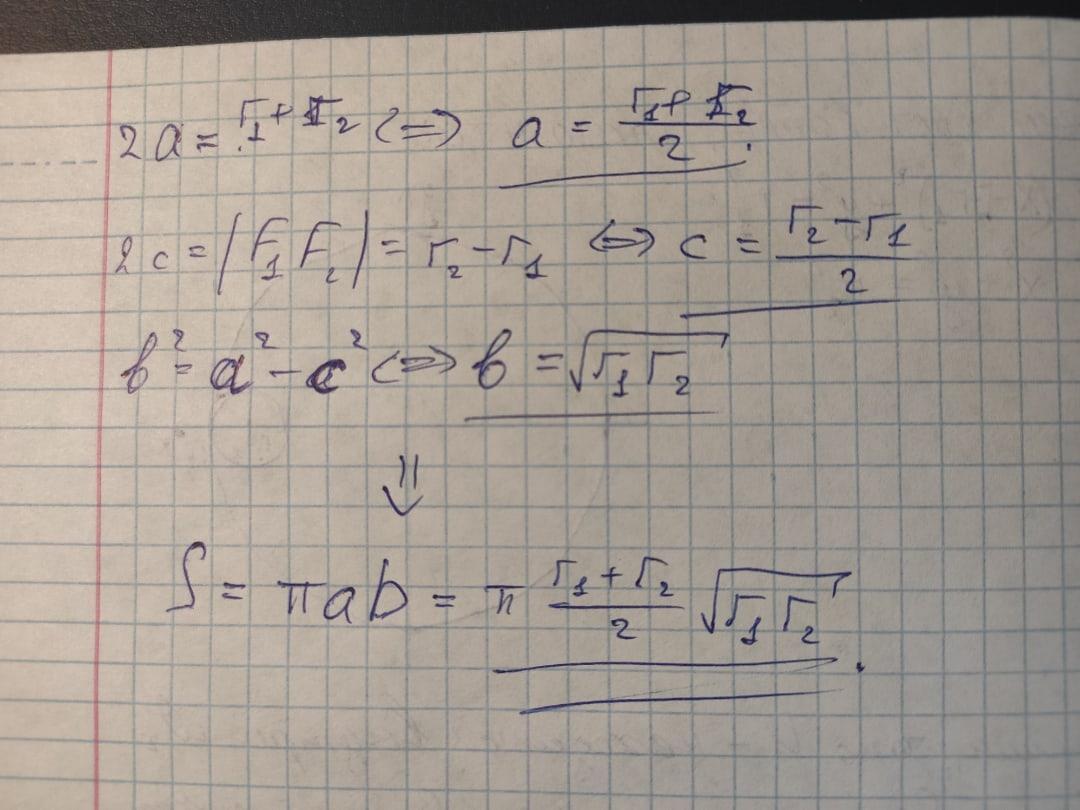 2a = r₁ + r₂ <=> a = (r₁ + r₂)/2.
2c = |F₁F₂| = r₂ - r₁ <=> c = (r₂ - r₁)/2
b² = a² - c² <=> b = √(r₁r₂)
⇓
S = πab = π (r₁ + r₂)/2 √(r₁r₂).